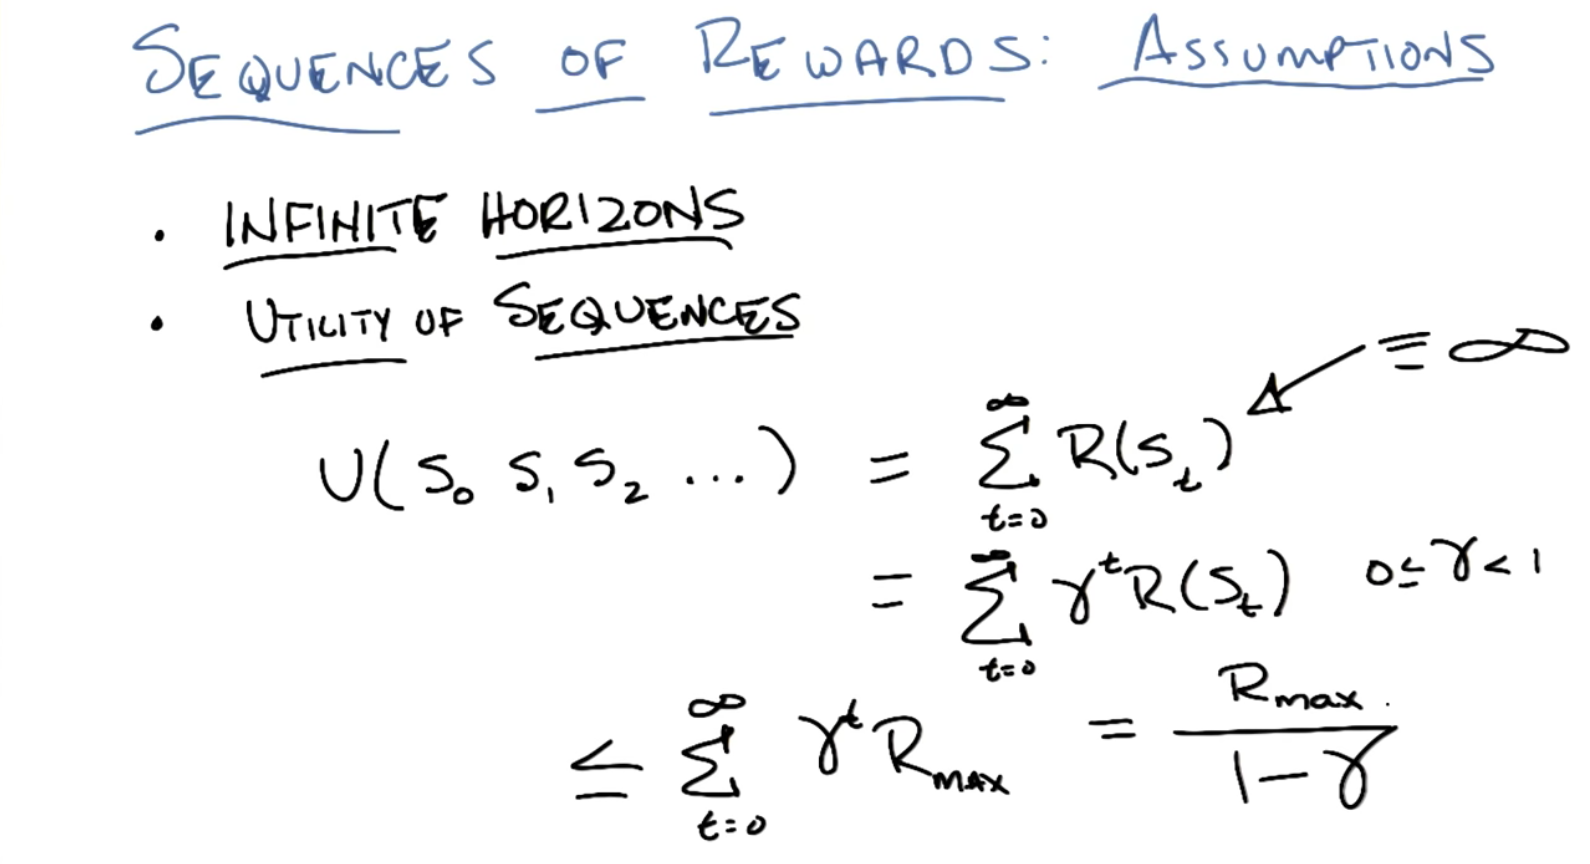 SEQUENCES OF REWARDS: ASSUMPTIONS
• INFINITE HORIZONS
• UTILITY OF SEQUENCES
≡ ∞
U(S₀ S₁ S₂ ...) = ∑_{t=0}^{∞} R(S_t)
= ∑_{t=0}^{∞} γ^t R(S_t) 0 ≤ γ < 1
≤ ∑_{t=0}^{∞} γ^t R_MAX = R_max / (1 - γ)